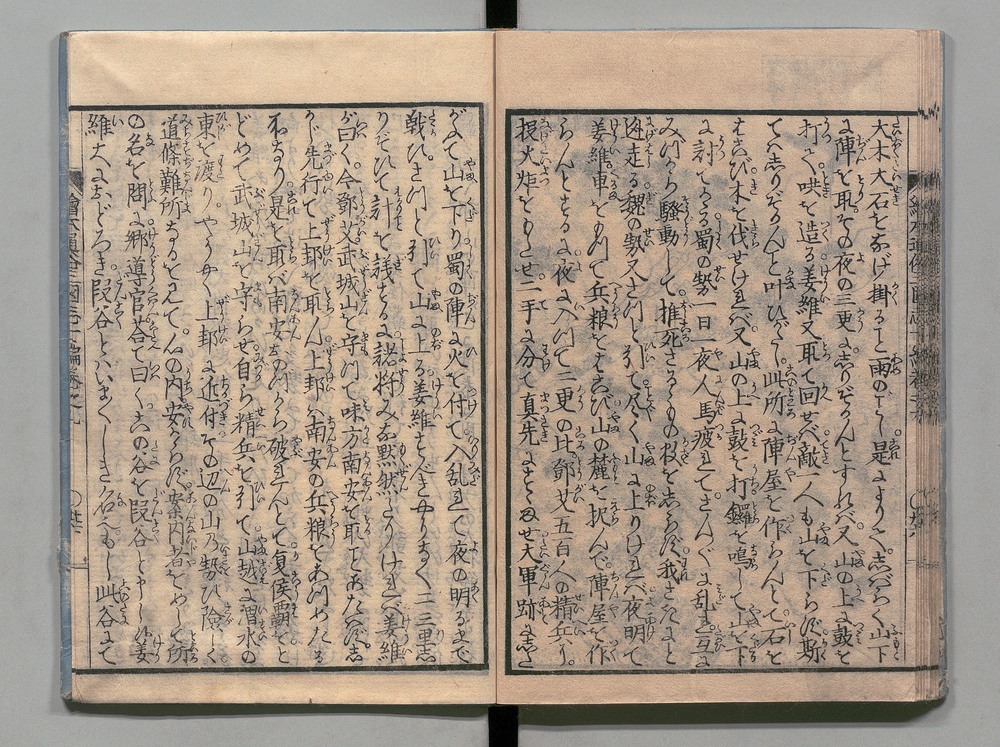 大木大石をなげ掛ること雨のごとし是によりてしばらく山下
に陣を取その夜の三更にしりぞかんとすれば又山の上に鼓を
打て哄を造る姜維又取て回せば敵一人も山を下らず斯
てしりぞかんと叶ひがたし此所に陣屋を作らんとて石を
はこび木を伐せければ又山の上に鼓を打鑼を鳴して山を下
に討てかゝる蜀の勢一日一夜人馬疲れてさんざんに乱れ互に
みづから騒動して推死さるゝもの数をしらず我さきにと
逃走る魏の勢又さつと引て尽く山に上りければ夜明て
姜維車をもつて兵粮をはこび山の麓を択んで陣屋を作
らんとする夜に入つて二更の比鄧艾五百人の精兵
投火炬をもたせ二手に分て真先にすゝませ大軍跡にした
がへて山を下り蜀の陣に火を付て入乱れて夜の明るまで
戦ひさつと引て山に上る姜維せんかたなく二三里し
りぞひて計を議するに諸将みな黙然たりければ姜維
が曰く今鄧艾武城山を守つて味方南安を取ことあたはず
かじ先行て上邽を取ん上邽は南安の兵粮をあつめたる
所なり是を取ば南安おのづから破れんとて夏侯覇をと
どめて武城山を守らせ自ら精兵を引て山越に渭水の
東を渡りやうやく上邽に近付その辺の山の勢ひ険しく
道條難所なるを見て心の内安からず案内者をめして所
の名を問ふ郷導官答て曰く此の谷を段谷と申し姜
維大におどろき段谷とはいまはしき名なりもし此谷にて